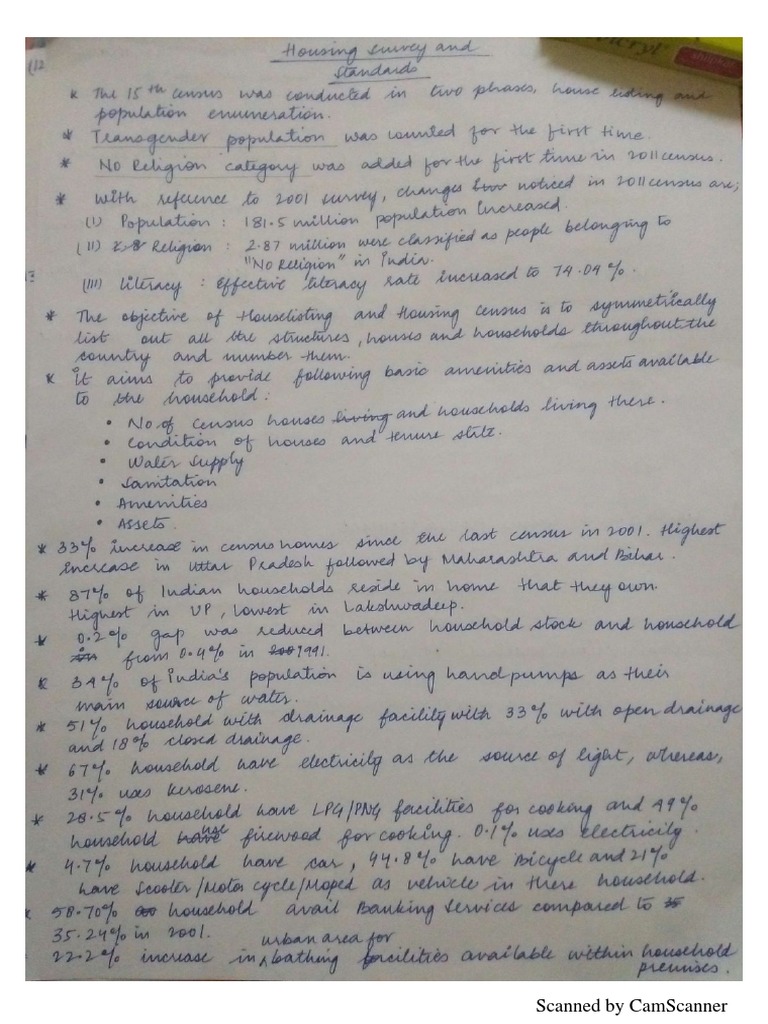 Housing Survey and
Standards
* The 15th census was conducted in two phases, house listing and
population enumeration.
* Transgender population was counted for the first time.
* No Religion category was added for the first time in 2011 census.
* With reference to 2001 survey, changes noticed in 2011 census are;
(I) Population : 181.5 million population Increased.
(II) Religion : 2.87 million were classified as people belonging to
"No Religion" in India.
(III) Literacy : Effective literacy rate increased to 74.04%.
* The objective of Houselisting and Housing Census is to symmetrically
list out all the structures, houses and households throughout the
country and number them.
* It aims to provide following basic amenities and assets available
to the household :
• No of census houses living and households living there.
• Condition of houses and tenure state.
• Water Supply
• Sanitation
• Amenities
• Assets.
* 33% increase in census homes since the last census in 2001. Highest
Increase in Uttar Pradesh followed by Maharashtra and Bihar.
* 87% of Indian households reside in home that they own.
Highest in UP, lowest in Lakshwadeep.
* 0.2% gap was reduced between household stock and household
from 0.4% in 1991.
* 34% of India's population is using hand pumps as their
main source of water.
* 51% household with drainage facility with 33% with open drainage
and 18% closed drainage.
* 67% household have electricity as the source of light, whereas,
31% uses kerosene.
* 28.5% household have LPG/PNG facilities for cooking and 49%
household have use firewood for cooking. 0.1% uses electricity.
* 4.7% household have car, 44.8% have Bicycle and 21%
have Scooter/Motor cycle/Moped as vehicle in there household.
* 58.70% household avail Banking Services compared to 35
35.24% in 2001.
urban area for
22.2% increase in bathing facilities available within household
premises.
Scanned by CamScanner